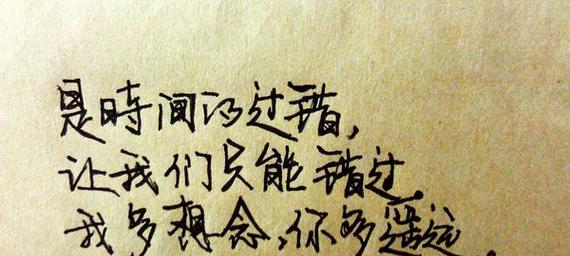 是時间的过错,
让我们只能错过.
我多想念,你多遥远.